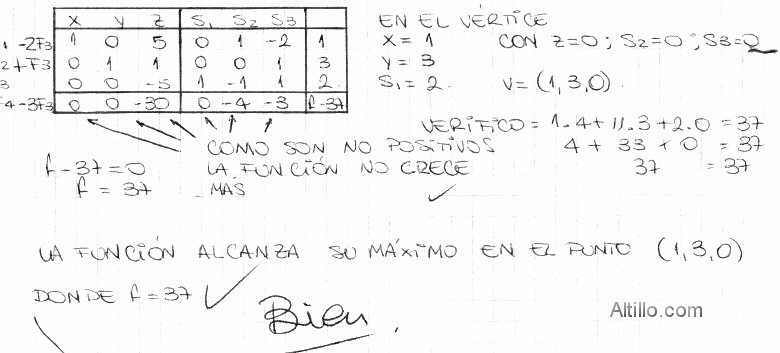 X Y Z S1 S2 S3
1 -2F3 1 0 5 0 1 -2 1
2+F3 0 1 1 0 0 1 3
3 0 0 -5 1 -1 1 2
4-3F3 0 0 -30 0 -4 -3 f-37
EN EL VÉRTICE
X = 1 CON Z=0 ; S2=0 ; S3=0
Y = 3
S1 = 2. V= (1,3,0).
VERIFICO = 1.4+11.3+2.0 = 37
4 + 33 + 0 = 37
37 = 37
COMO SON NO POSITIVOS
LA FUNCIÓN NO CRECE
MAS
f-37=0
f = 37
LA FUNCIÓN ALCANZA SU MÁXIMO EN EL PUNTO (1,3,0)
DONDE f=37
Bien.
Altillo.com